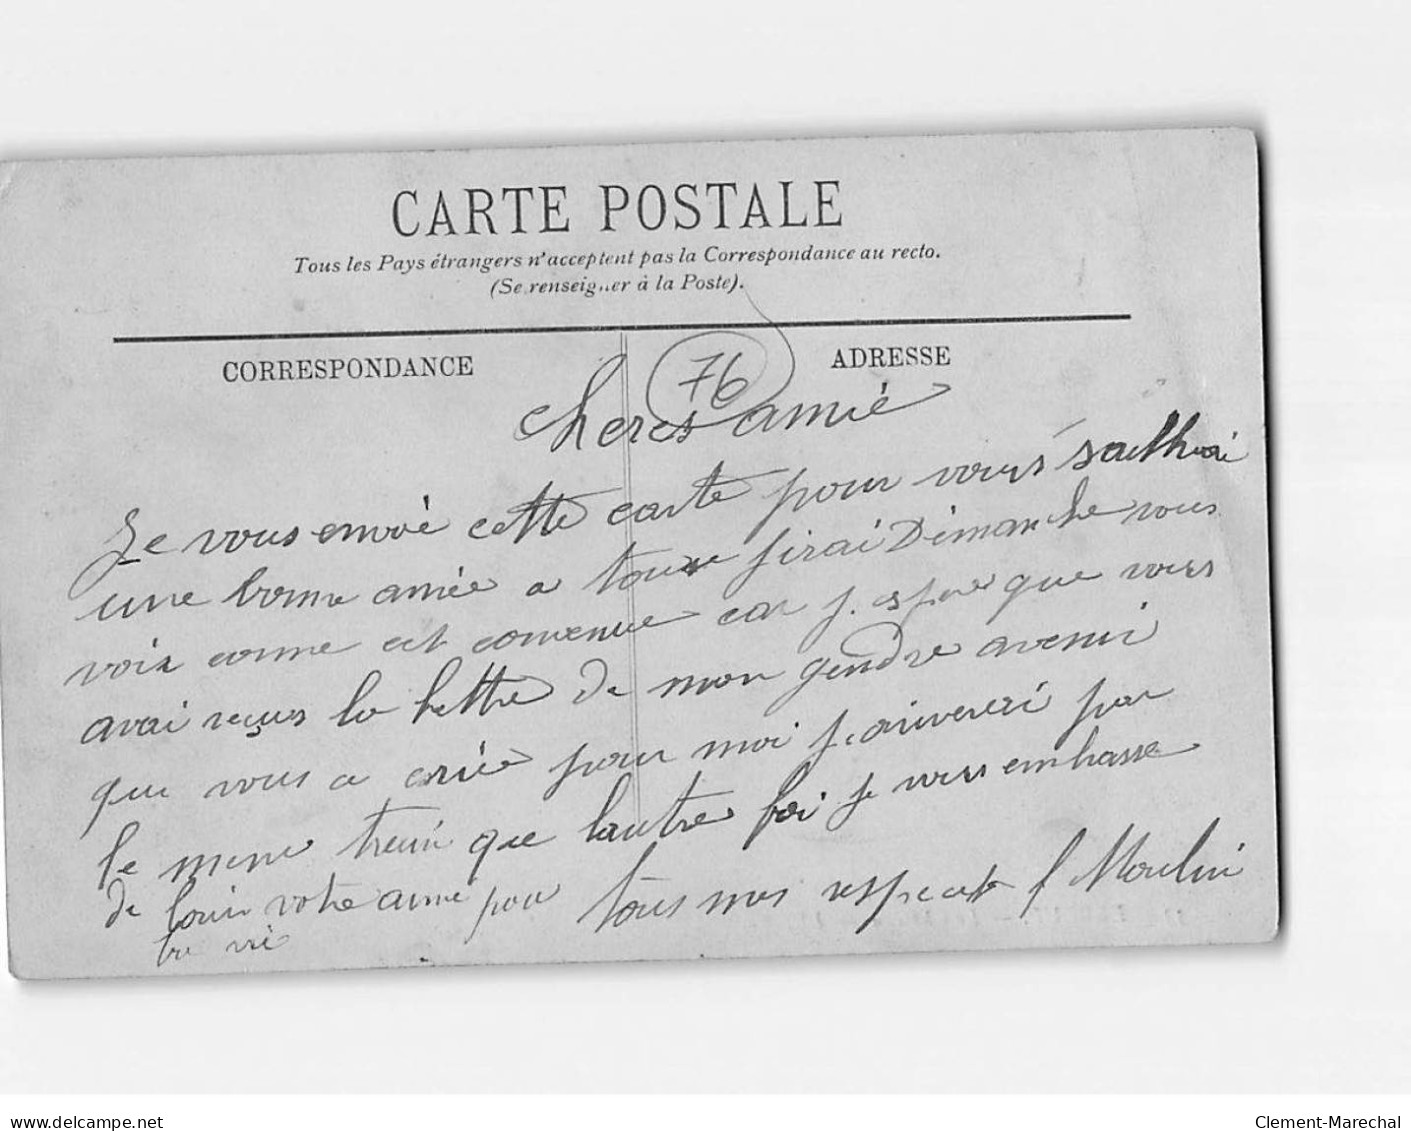 CARTE POSTALE
Tous les Pays étrangers n'acceptent pas la Correspondance au recto.
(Se renseigner à la Poste).
CORRESPONDANCE
ADRESSE
76
cheres amié
Je vous envoié cette carte pour vous
une bonne année a tous j irai Dimanche vous
voir comme cet convenue car j. espere que vous
avai reçus la lettre de mon gendre avenir
que vous a criée pour moi j. ariverai par
le meme train que lautre foi je vous embrasse
de louin votre amie pour tous mes respect f Moulin
la vie
delcampe.net
Clement-Marechal